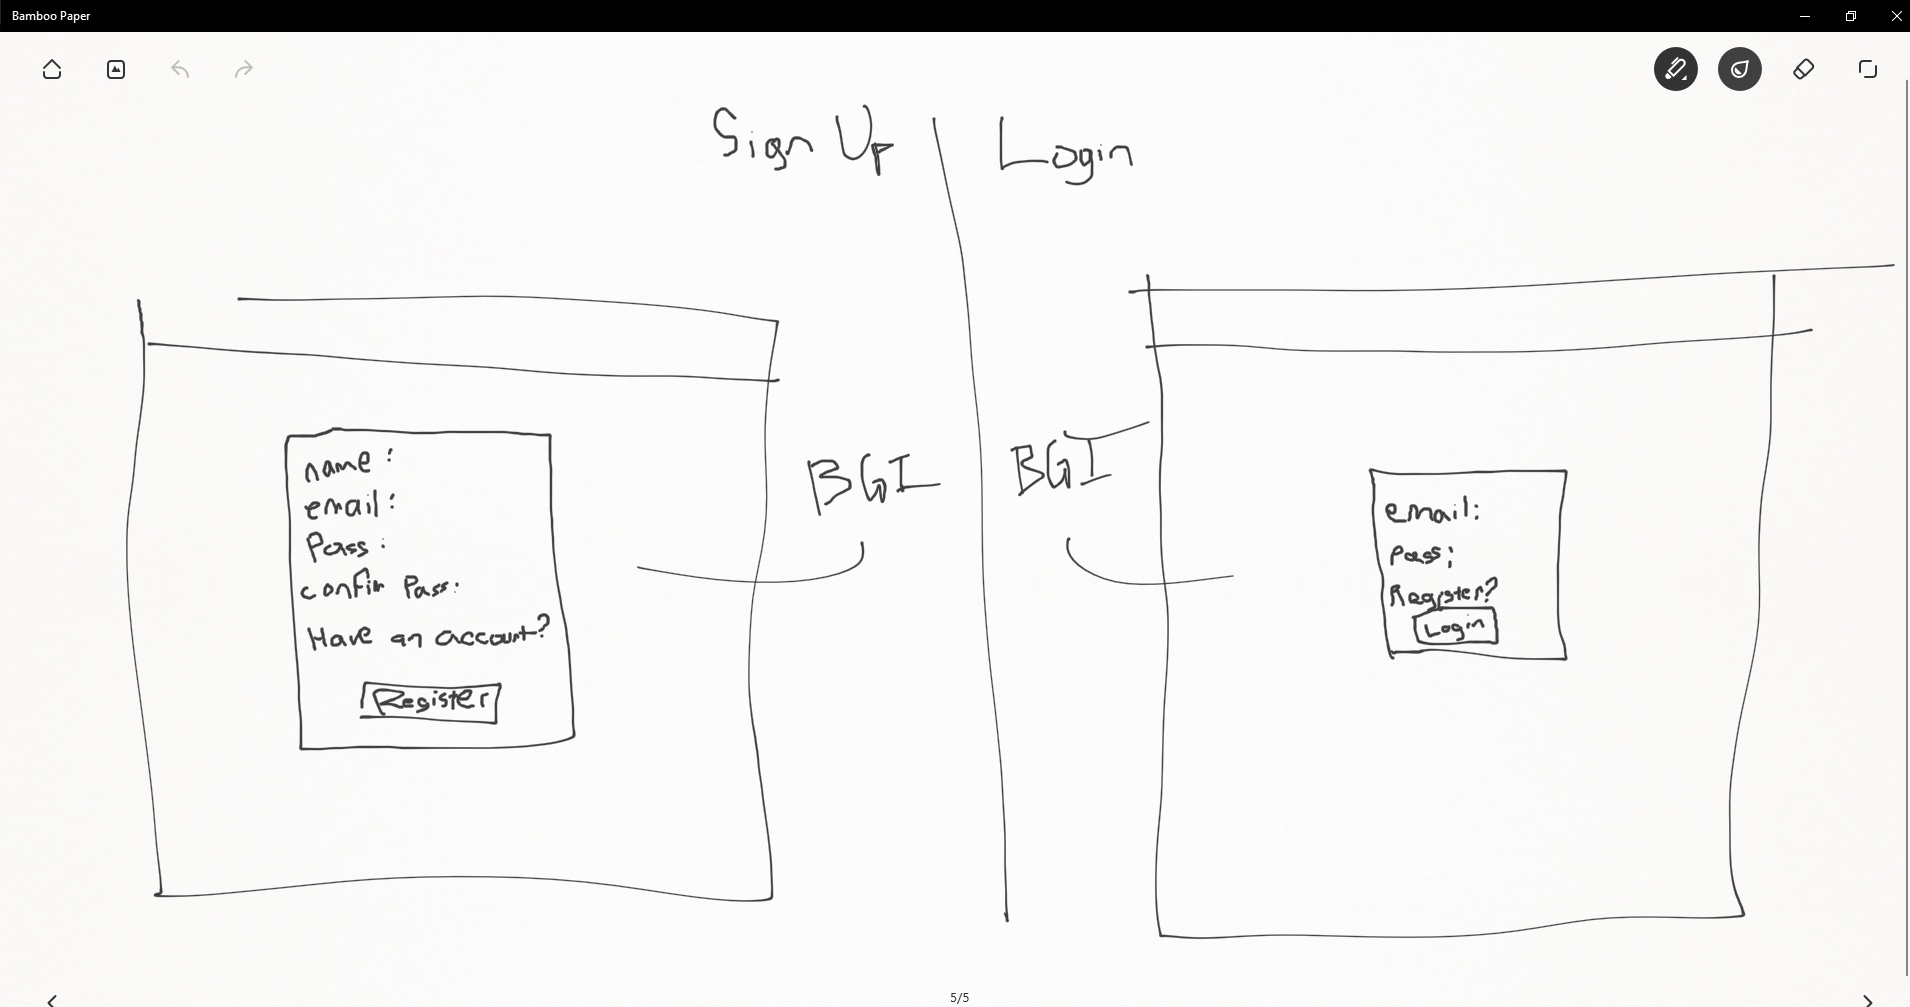 Bamboo Paper
Sign Up
Login
name:
email:
Pass:
confirm Pass:
Have an account?
Register
BGI
BGI
email:
pass;
Register?
Login
5/5